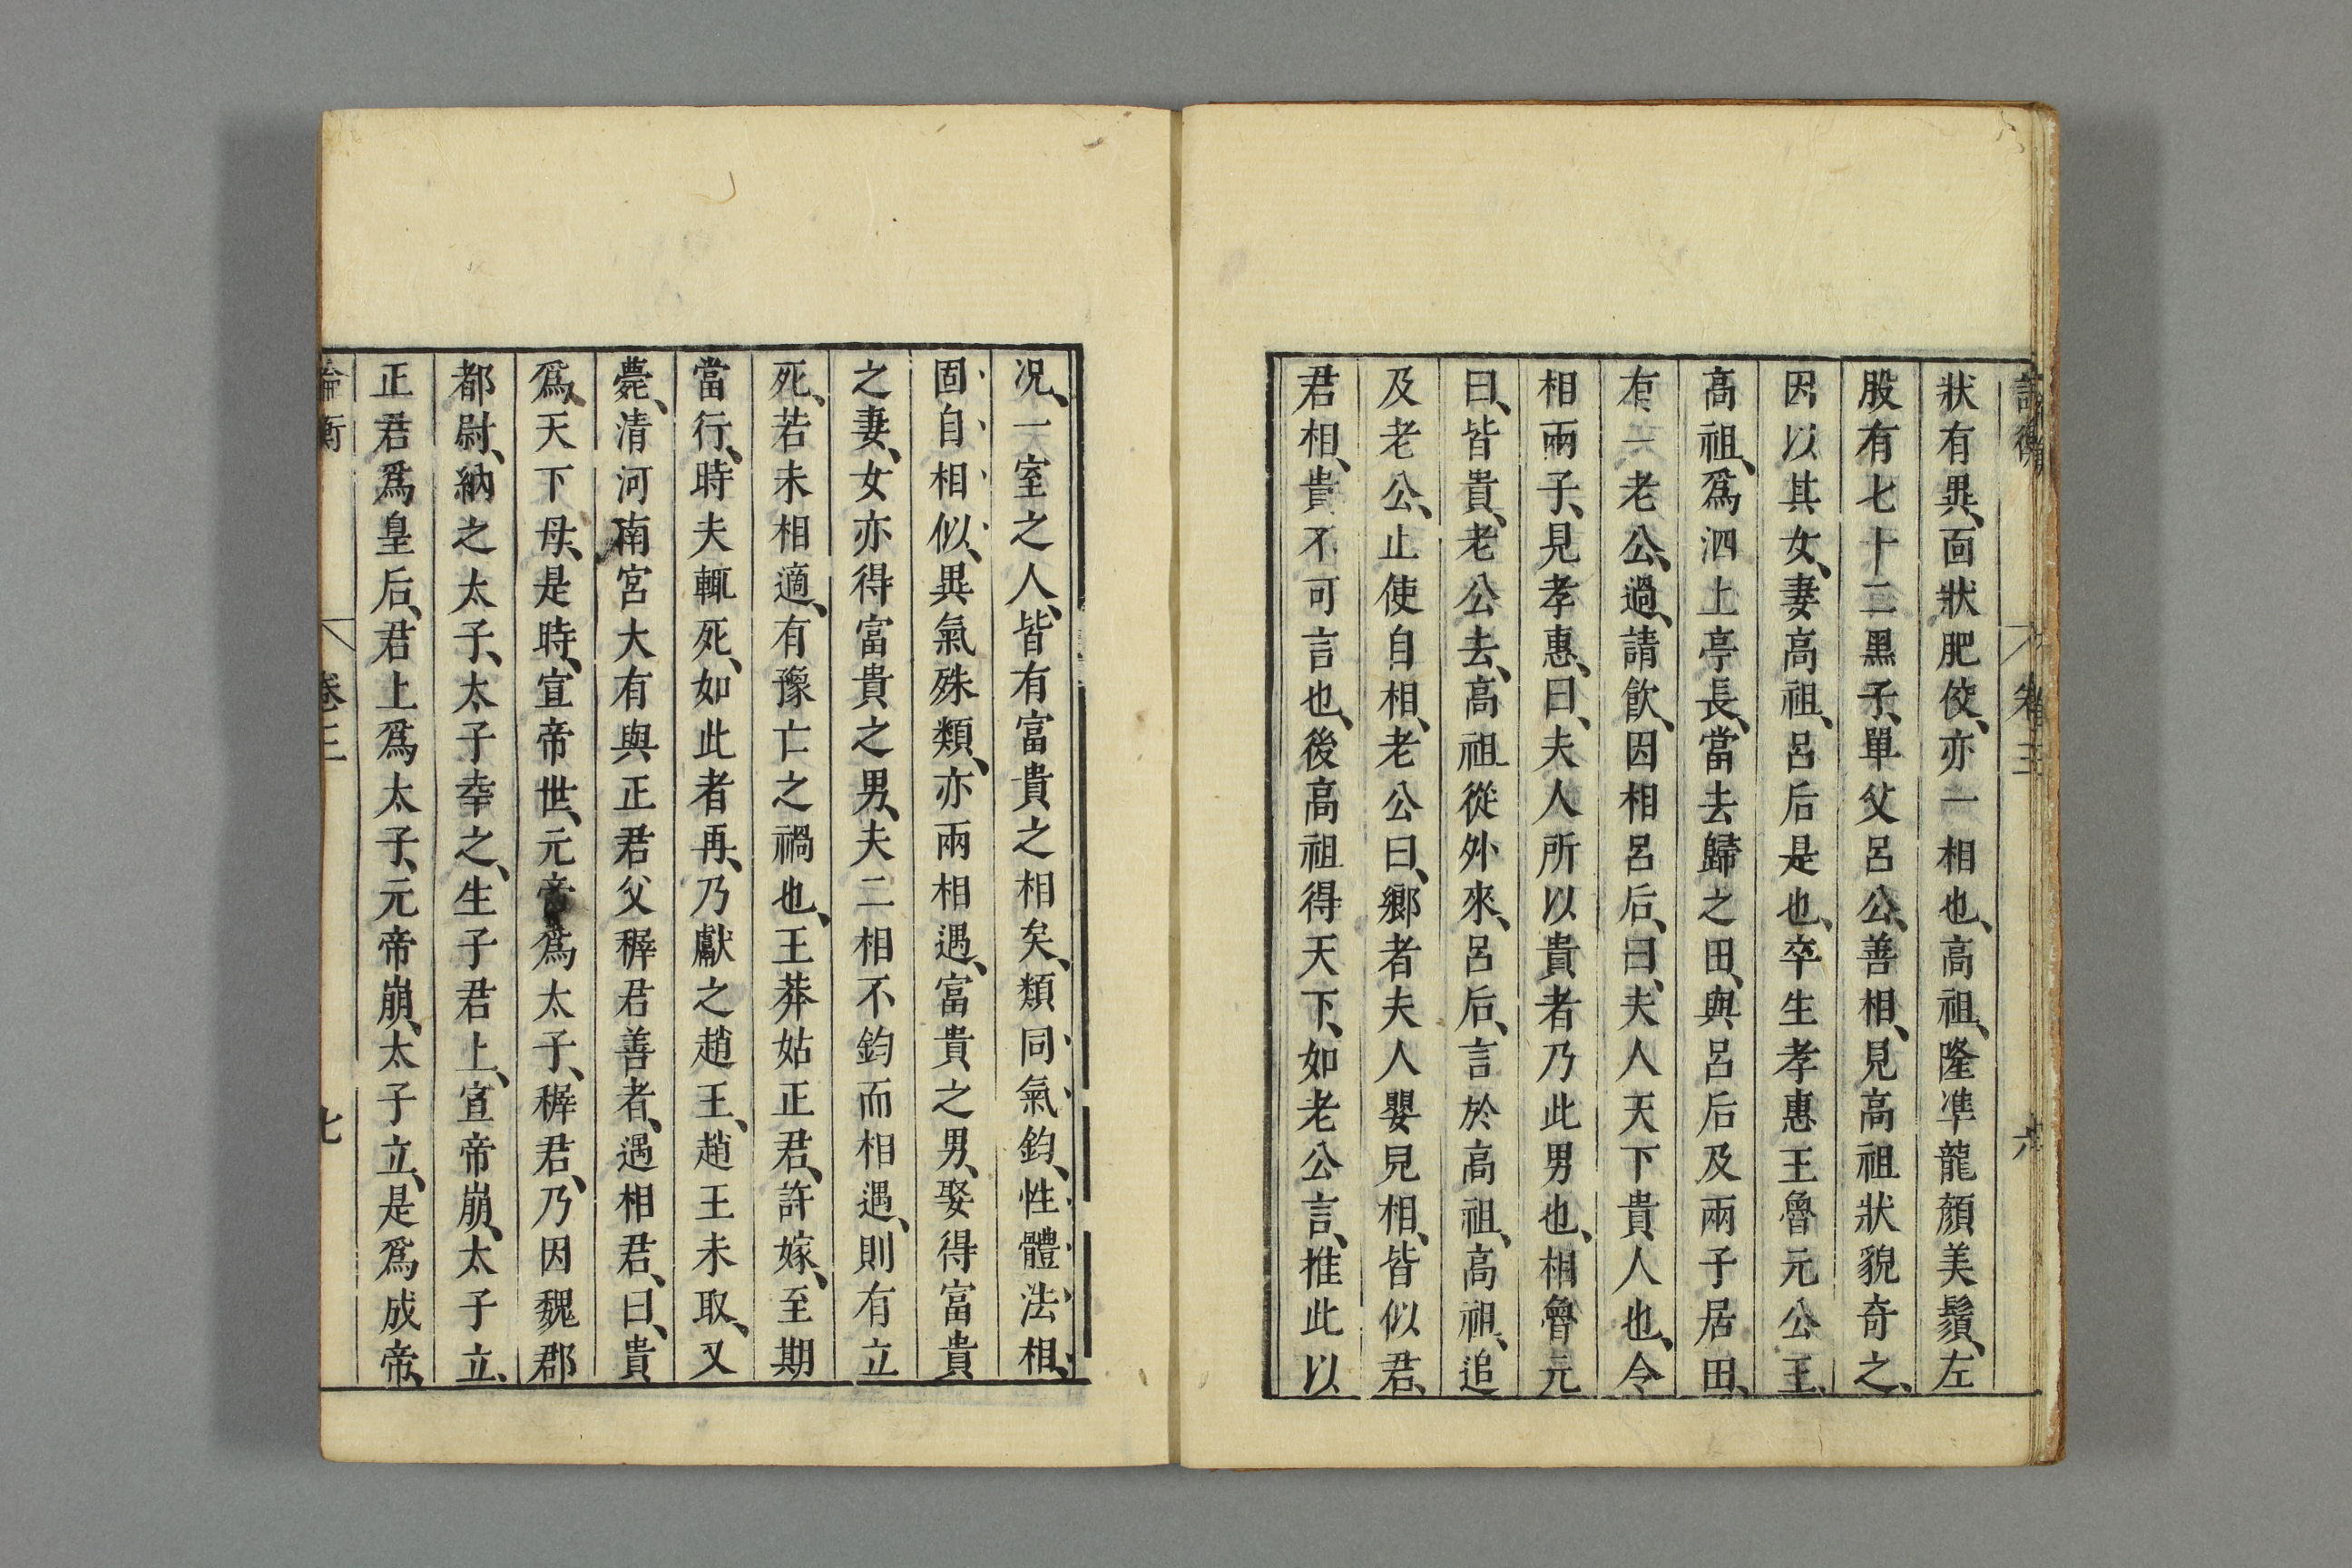 論衡 卷三 六
狀有異、面狀肥佼、亦一相也、高祖、隆準龍顏美鬚、左
股有七十二黑子、單父呂公、善相、見高祖狀貌奇之、
因以其女、妻高祖、呂后是也、卒生孝惠王魯元公主、
高祖、爲泗上亭長、當去歸之田、與呂后及兩子居田、
有一老公、過、請飲、因相呂后、曰、夫人天下貴人也、令
相兩子、見孝惠、曰、夫人所以貴者乃此男也、相魯元
曰、皆貴、老公去、高祖從外來、呂后、言於高祖、高祖、追
及老公、止使自相、老公曰、鄉者夫人嬰兒相、皆似君、
君相、貴不可言也、後高祖得天下、如老公言、推此以
况、一室之人、皆有富貴之相矣、類同氣鈞、性體法相、
固自相似、異氣殊類、亦兩相遇、富貴之男、娶得富貴
之妻、女亦得富貴之男、夫二相不鈞而相遇、則有立
死、若未相適、有豫亡之禍也、王莽姑正君、許嫁、至期
當行、時夫輒死、如此者再、乃獻之趙王、趙王未取、又
薨、清河南宮大有與正君父穉君善者、遇相君、曰、貴
爲天下母、是時、宣帝世、元帝爲太子、穉君、乃因魏郡
都尉、納之太子、太子幸之、生子君上、宣帝崩、太子立、
正君爲皇后、君上爲太子、元帝崩、太子立、是爲成帝、
論衡 卷三 七